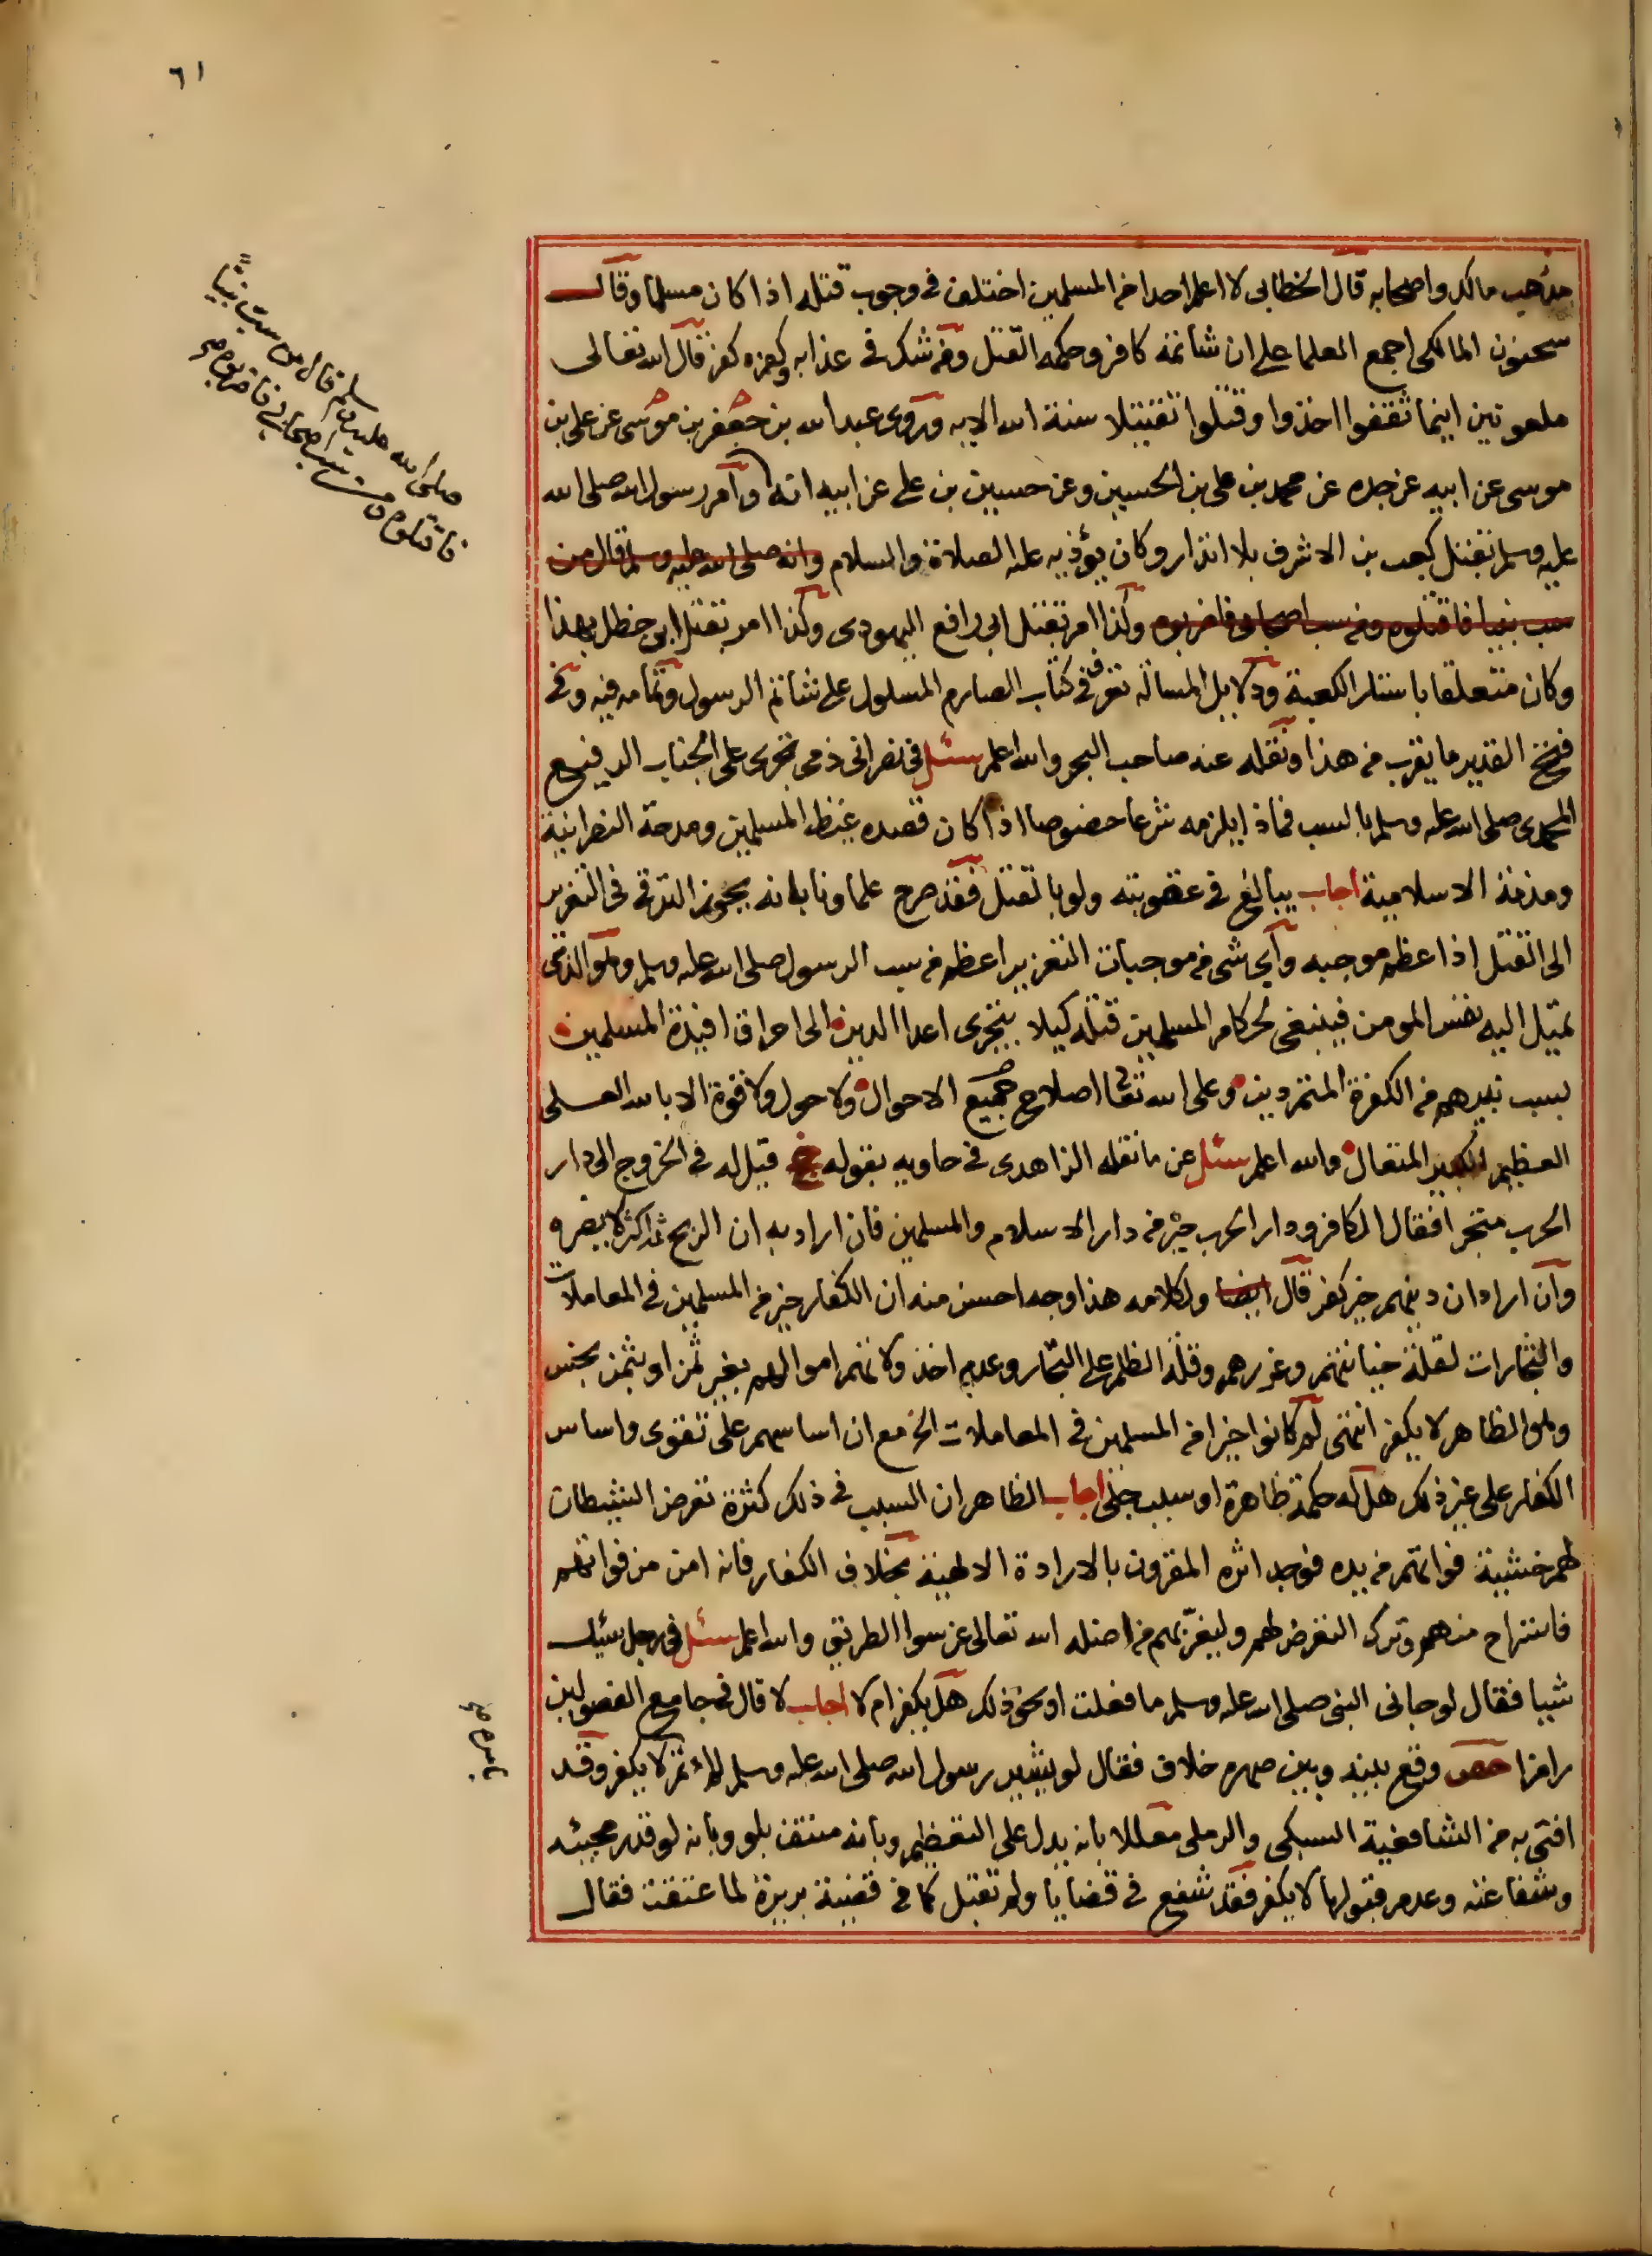 ٦١
مذهب مالك واصحابه قال الخطابى لا اعلم احدا من المسلمين اختلف فى وجوب قتله اذا كان مسلما وقال
سحنون المالكى اجمع العلما على ان شاتمه كافر وحكمه القتل ومن شك فى عذابه وكفره كفر قال الله تعالى
ملعونين اينما ثقفوا اخذوا وقتلوا تقتيلا سنة الله الايه وروى عبد الله بن جعفر بن موسى عن على بن
موسى عن ابيه عن جده عن محمد بن على بن الحسين وعن حسين بن على عن ابيه انه وامر رسول الله صلى الله
عليه وسلم بقتل كعب بن الاشرف بلا انذار وكان يؤذيه عليه الصلاة والسلام وانه صلى الله عليه وسلم قال من
سب نبيا فاقتلوه ومن سب اصحابى فاضربوه وكذا امر بقتل ابى رافع اليهودى وكذا امر بقتل ابن خطل بهذا
وكان متعلقا باستار الكعبة ودلايل المسالة تعرف فى كتاب الصارم المسلول على شاتم الرسول وتمامه فيه وفى
فتح القدير ما يقرب من هذا ونقله عنه صاحب البحر والله اعلم سئل فى نصرانى ذمى تجرى على الجناب الرفيع
المحمدى صلى الله عليه وسلم بالسب فماذا يلزمه شرعا خصوصا اذا كان قصده غيظ المسلمين ومدحة النصرانية
ومذمة الاسلامية اجاب يبالغ فى عقوبته ولو بالقتل فقد صرح علماونا بانه يجوز الترقى فى التعزير
الى القتل اذا عظم موجبه واى شى من موجبات التعزير اعظم من سب الرسول صلى الله عليه وسلم وهو الذى
تميل اليه نفس المومن فينبغى لحكام المسلمين قتله كيلا يتجرى اعدا الدين الى احراق افيدة المسلمين
بسبب نبيهم من الكفرة المتمردين وعلى الله تعالى اصلاح جميع الاحوال ولا حول ولا قوة الا بالله العلى
العظيم الكبير المتعال والله اعلم سئل عن ما نقله الزاهدى فى حاويه بقوله قيل له فى الخروج الى دار
الحرب متجرا فقال الكافر ودار الحرب خير من دار الاسلام والمسلمين فان اراد به ان الربح ثمه اكثر لا يضره
وان اراد ان دينهم خير كفر قال ايضا ولكلامه هذا وجه احسن منه ان الكفار خير من المسلمين فى المعاملات
والتجارات لقلة خيانتهم وغدرهم وقلة الظلم على التجار وعدم اخذ ولاتهم اموالهم بغير ثمن او بثمن بخس
وهو الظاهر لا يكفر انتهى لم كانوا خيرا من المسلمين فى المعاملات الخ مع ان اساسهم على تقوى واساس
الكفار على غير ذلك هل له حكمة ظاهرة او سبب خفى اجاب الظاهر ان السبب فى ذلك كثرة تعرض الشيطان
لهم خشية فواتهم من يده فوجد اثره المقرون بالارادة الالهية بخلاف الكفار فانه امن من فواتهم
فاستراح منهم وترك التعرض لهم وليغر بهم من اضله الله تعالى عن سوا الطريق والله اعلم سئل فى رجل سئل
شيا فقال لو جانى النبى صلى الله عليه وسلم ما فعلت او نحو ذلك هل يكفر ام لا اجاب لا قال فى جامع الفصولين
رامزا حص وقع بينه وبين صهره خلاف فقال لو بشير رسول الله صلى الله عليه وسلم لم اءتمر لا يكفر وقد
افتى به من الشافعية السبكى والرملى معللا بانه يدل على التعظيم وبانه منتف بلو وبانه لو قدر مجيئه
وشفاعته وعدم قبولها لا يكفر فقد شفع فى قضايا ولم تقبل كما فى قضية بريرة لما عتقت فقال
صلى الله عليه وسلم قال من سب نبيًا
فاقتلوه ومن سب اصحابي فاضربوه صح
بامره صح